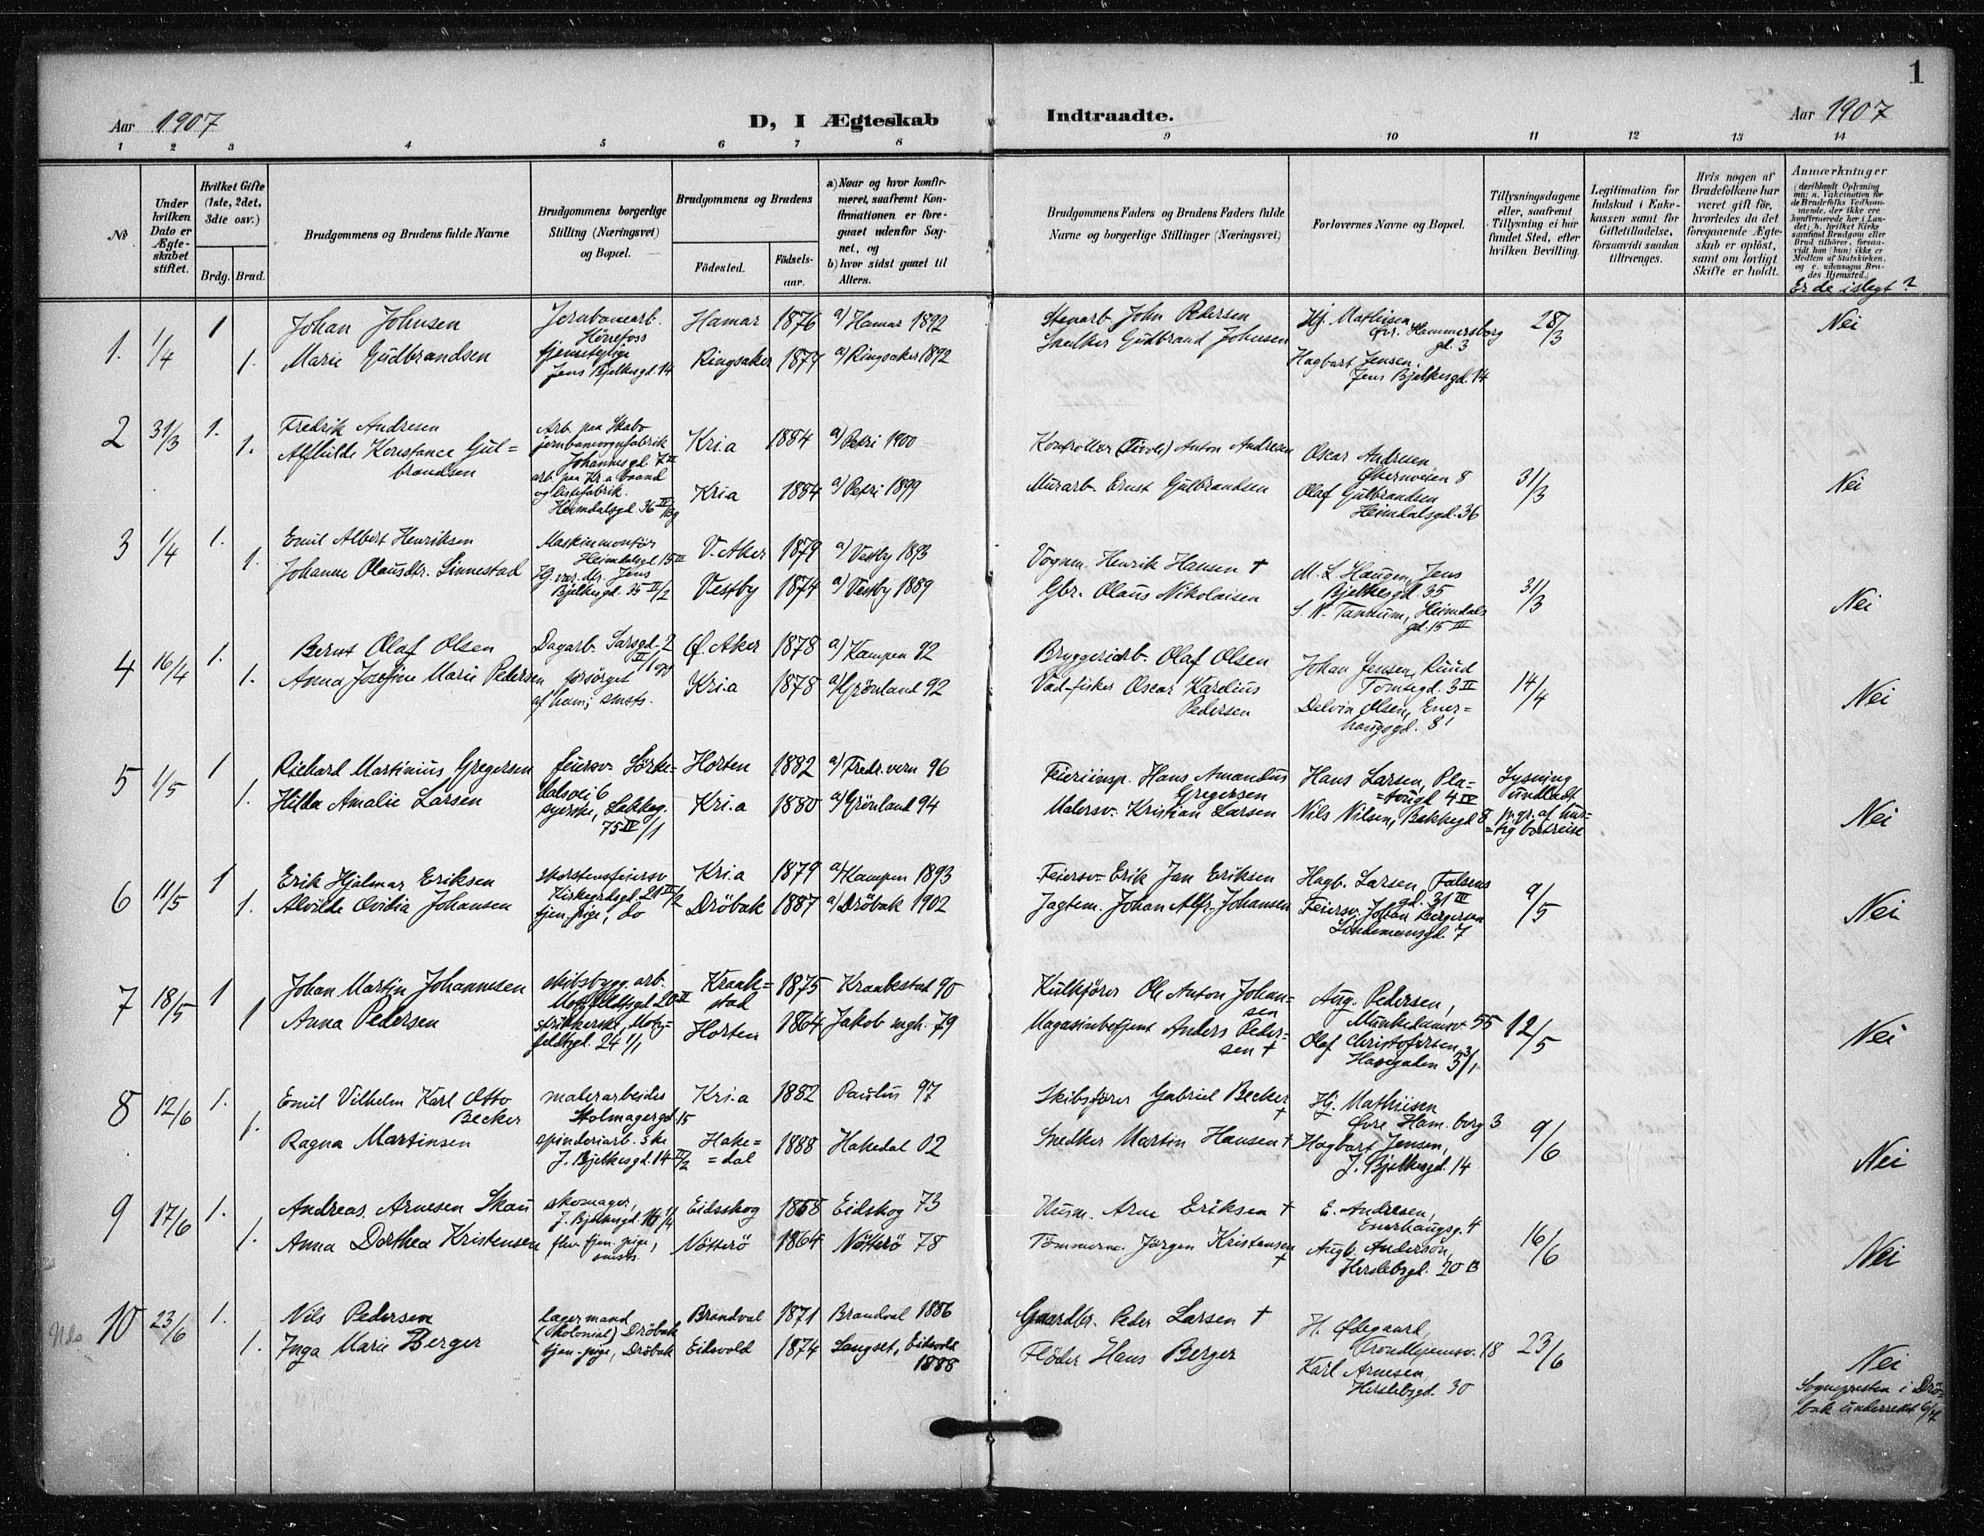 1
Aar 1907 D, I Ægteskab Indtraadte. Aar 1907
1 2 3 4 5 6 7 8 9 10 11 12 13 14
№
Under hvilken Dato er Ægteskabet stiftet.
Hvilket Gifte (1ste, 2det, 3die osv.)
Brdg. Brud.
Brudgommens og Brudens fulde Navne
Brudgommens borgerlige Stilling (Næringsvei) og Bopæl.
Brudgommens og Brudens
Fødested. Fødselsaar.
a) Naar og hvor konfirmeret, saafremt Konfirmationen er foregaaet udenfor Sognet, og
b) hvor sidst gaaet til Alters.
Brudgommens Faders og Brudens Faders fulde Navne og borgerlige Stillinger (Næringsvei)
Forlovernes Navne og Bopæl.
Tillysningsdagene eller, saafremt Tillysning ei har fundet Sted, efter hvilken Bevilling.
Legitimation for Indskud i Enkekassen samt for Giftetilladelse, forsaavidt saadan tiltrænges.
Hvis nogen af Brudefolkene har været gift før, hvorledes da det foregaaende Ægteskab er opløst, samt om lovligt Skifte er holdt.
Anmærkninger
(deriblandt Oplysning om: a. Vakcination for de Brudefolks Vedkommende, der ikke ere konfirmerede her i Landet; b. hvilket Kirkesamfund Brudgom eller Brud tilhører, forsaavidt han (hun) ikke er Medlem af Statskirken, og c. udensogns Brudes Hjemsted.)
Er de i slegt?
1. 1/4 1 Johan Johnsen Jernbanearb. Hönefoss Hamar 1876 a) Hamar 1892 Stenarb. John Pedersen Hj. Mathisen Øvr. Hammersborg gd. 3 28/3 Nei
1. Marie Gudbrandsen tjenestepige Jens Bjelkesgd. 14 Ringsaker 1874 a) Ringsaker 1892 Snelker Gudbrand Johnsen Hagbart Jensen, Jens Bjelkesgd. 14
2 31/3 1. Fredrik Andresen Arb. paa Skabo jernbanevognfabrik Johannesgd. 7 II Kria 1884 a) Petri 1900 Kontrollør (Tivoli) Anton Andresen Oscar Andresen 8 31/3 Nei
1. Alfhilde Konstance Gulbrandsen arb. paa Kr.a baand og listefabrik. Heimdalsgd. 36 Kria 1884 a) Petri 1899 Murarb. Ernst Gulbrandsen Olaf Gulbrandsen Heimdalsgd. 36
3 1/4 1. Emil Albert Henriksen Maskinmontör Heimdalsgd 15 III V. Aker 1879 a) Vestby 1893 Vognm. Henrik Hansen † M. L. Haugen, Jens Bjelkesgd. 35 31/3 Nei
1. Johanne Olausdtr. Linnestad Jens Bjelkesgd. 35 II/2 Vestby 1874 a) Vestby 1889 Gbr. Olaus Nikolaisen S. N. Tannum, Heimdalsgd. 15 III
4 16/4 1. Bernt Olaf Olsen Dagarb. Sarsgd. 2 Ø. Aker 1878 a) Kampen 92 Bryggeriarb. Olaf Olsen Johan Jensen, Ruud Tomtegd. 3 II 14/4 Nei
1. Anna Josefine Marie Pedersen forsörget af ham; smsts. Kri.a 1878 a) Grönland 92 Oscar Karelius Pedersen Olsen, Enerhaugsgd. 8
5 1/5 1 Richard Martinius Gregersen feiersv. Sörkedalsvei 6 Horten 1882 a) Fredr.vern 96 Feierinsp. Hans Amandus Gregersen Hans Larsen, Platougd 4 IV Lysning undladt p. gr. af hurtig bortreise Nei
1. Hilda Amalie Larsen syerske, Lakkeg. 75 IV/1 Kri.a 1880 a) Grönland 94 Malersv. Kristian Larsen Nils Nilsen, Bakkegd 8
6 11/5 1 Erik Hjalmar Eriksen skorstensfeiersv Kirkegdsgd. 21 II/2 Kri.a 1879 a) Kampen 1893 Feiersv. Erik Jan Eriksen Hagb. Larsen, Falsensgd. 31 III 9/5 Nei
1. Alvilde Ovidia Johansen tjen.pige, do Dröbak 1887 a) Dröbak 1902 Jagtem. Johan Alfr. Johansen Feiersv. Johan Bergersen Lindemansgd. 7
7 18/5 1 Johan Martin Johannesen skibsbygg. arb. 20 II Kraakstad 1875 Kraakstad 90 Kulkjörer Ole Anton Johansen Aug. Pedersen, Munkedamsv 55 12/5 Nei
1 Anna Pedersen strikkerske, Motzfeldtsgd. 24 1/1 Horten 1864 Jakob mgh. 79 Magasinbetjent Anders Pedersen † Olaf Christofersen, Havegaten 3
8 12/6 1. Emil Vilhelm Karl Otto Becker malerarbeider Holmagergd 15 Kri.a 1882 Paulus 97 Skibsförer Gabriel Becker † Hj. Mathiisen Øvre Ham.borg 3 9/6 Nei
1. Ragna Martinsen spinderiarb.ske J. Bjelkesgd. 14 II/2 Hakedal 1888 Hakedal 02 Snedker Martin Hansen † Hagbart Jensen, J. Bjelkesgd. 14
9 17/6 1. Andreas Arnesen Skau skomager, J. Bjelkesgd. Eidsskog 1858 Eidskog 73 Husm. Arne Eriksen † E. Andresen, Enerhaugsg. 4 16/6 Nei
1. Anna Dorthea Kristensen fhv. tjen. pige, smsts. Nötterö 1864 Nötterö 78 Tömmerm. Jörgen Kristensen † Augb. Anderson, Herslebsgd. 20 B
10 23/6 1. Nils Pedersen lagermand (Kolonial) Dröbak Brandval 1871 Brandval 1886 Gaardbr. Peder Larsen † H. Ødegaard, Trondhjemsv. 18 23/6 Nei
1. Inga Marie Berger tjen.pige, Dröbak Eidsvold 1874 Langset, Eidsvold 1888 Fløder Hans Berger Karl Arnesen, Herslebsgd. 30
Sognepresten i Dröbak underrettet 6/7